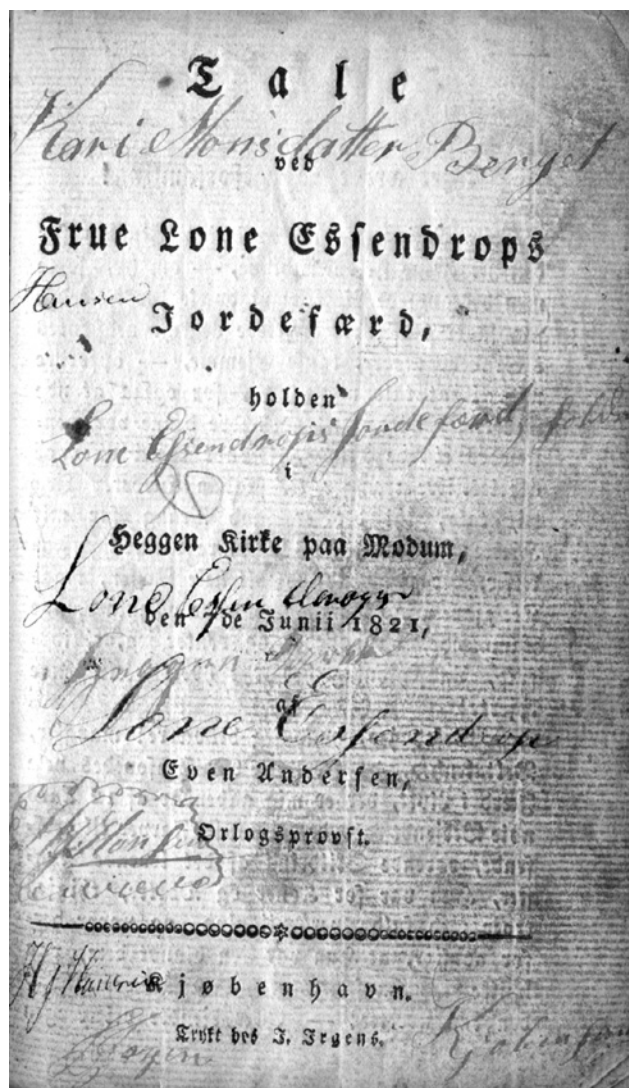 Tale
Kari Monsdatter Berget
ved
Frue Lone Essendrops
Hansen
Jordefærd,
holden
Lone Essendrops Jordefærd,
i
Heggen Kirke paa Modum,
Lone Essen
den 7de Junii 1821,
af
Lone Essendrop
Even Andersen,
Orlogsprovst.
Kjøbenhavn.
Trykt hos J. Jrgens.